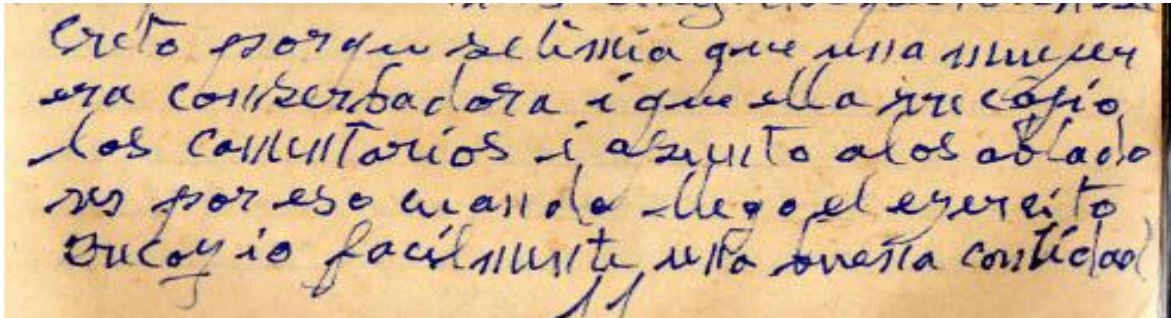 creto porqu se timia que una mujer
era conserbadora i que ella recojio
los comentarios i asunto a los ablado
res por eso cuando llego el egercito
recogio facilmente una buena cantidad
11